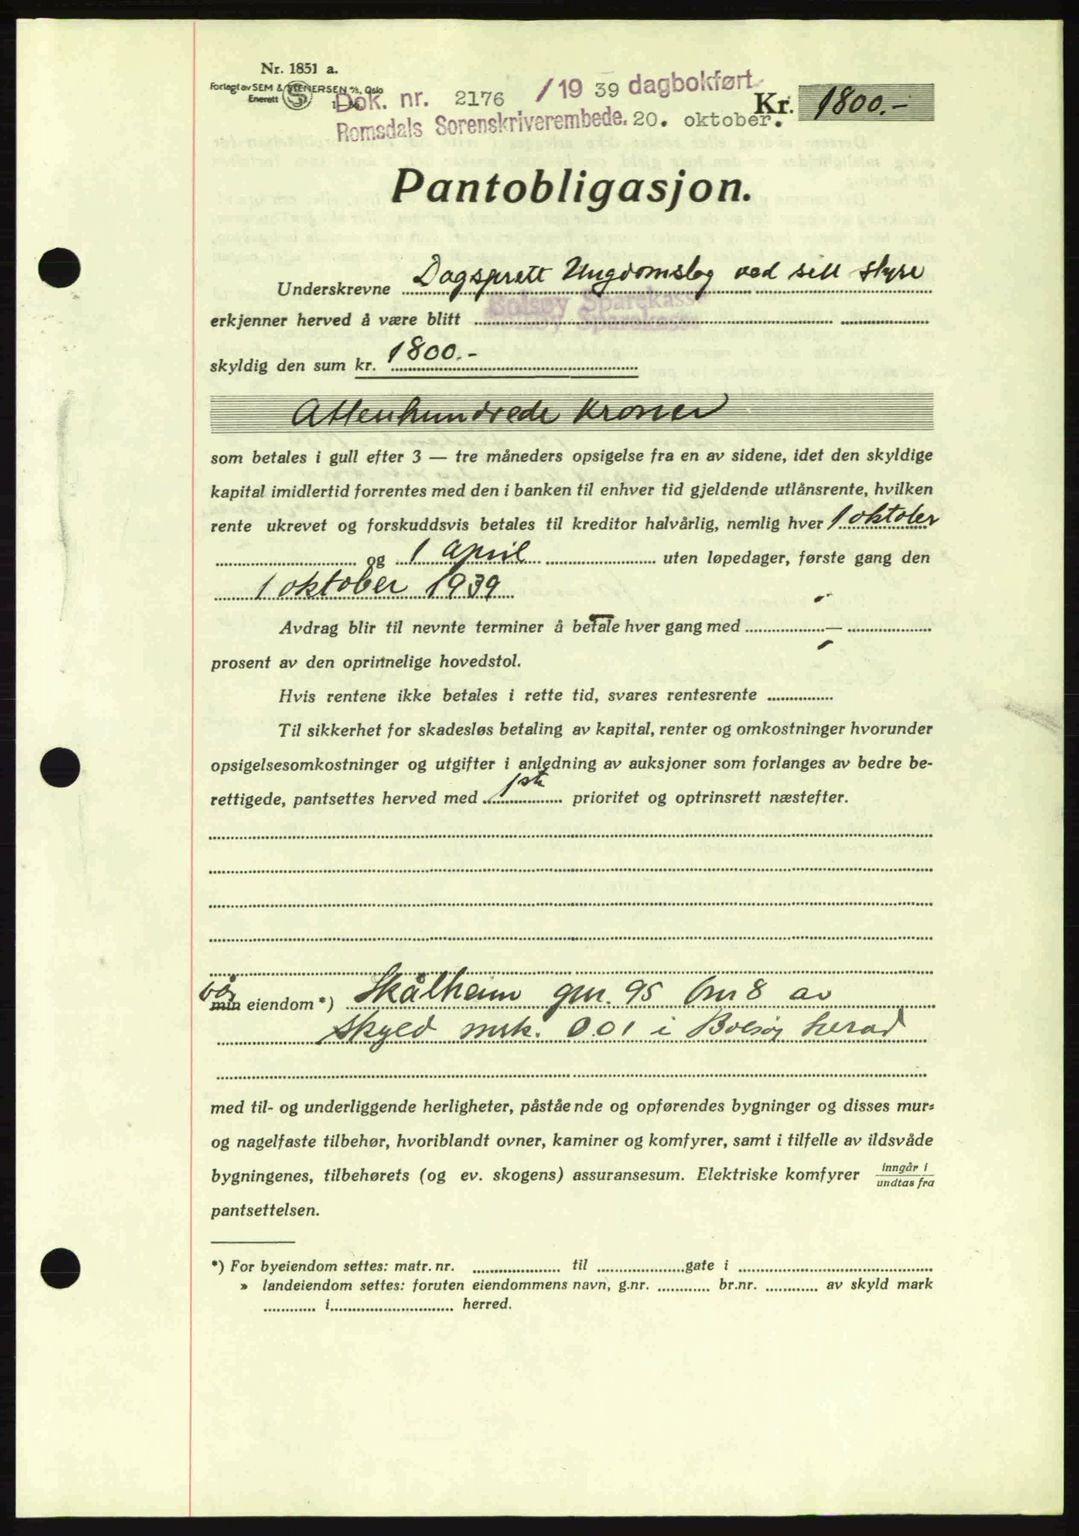 Nr. 1851 a.
Forlagt av SEM & STENERSEN A/S, Oslo
Enerett
Dok. nr. 2176 /19 39 dagbokført
Romsdals Sorenskriverembede. 20. oktober.
Kr. 1800.-
Pantobligasjon.
Underskrevne Dagsprett Ungdomslag ved sitt styre
erkjenner herved å være blitt Bolsøy Sparekasse
skyldig den sum kr. 1800.-
Attenhundrede kroner
som betales i gull efter 3 — tre måneders opsigelse fra en av sidene, idet den skyldige
kapital imidlertid forrentes med den i banken til enhver tid gjeldende utlånsrente, hvilken
rente ukrevet og forskuddsvis betales til kreditor halvårlig, nemlig hver 1 oktober
og 1 april uten løpedager, første gang den
1 oktober 1939
Avdrag blir til nevnte terminer å betale hver gang med —
prosent av den oprinnelige hovedstol.
Hvis rentene ikke betales i rette tid, svares rentesrente
Til sikkerhet for skadesløs betaling av kapital, renter og omkostninger hvorunder
opsigelsesomkostninger og utgifter i anledning av auksjoner som forlanges av bedre be-
rettigede, pantsettes herved med 1ste prioritet og optrinsrett næstefter.
vår
min eiendom *) Skålheim gnr. 95 bnr 8 av
skyld mrk. 0.01 i Bolsøy herad
med til- og underliggende herligheter, påstående og opførendes bygninger og disses mur-
og nagelfaste tilbehør, hvoriblandt ovner, kaminer og komfyrer, samt i tilfelle av ildsvåde
bygningenes, tilbehørets (og ev. skogens) assuransesum. Elektriske komfyrer inngår i / undtas fra
pantsettelsen.
*) For byeiendom settes: matr. nr. til gate i
» landeiendom settes: foruten eiendommens navn, g.nr. br.nr. av skyld mark
i herred.